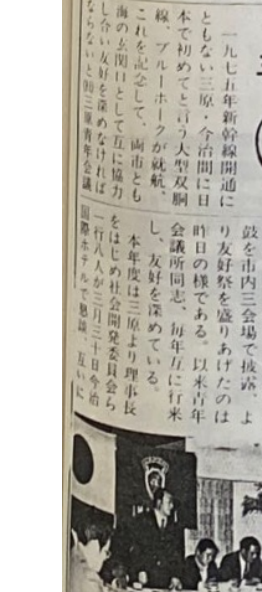 一九七五年新幹線開通に
ともない三原・今治間に日
本で初めてと言う大型双胴
線、ブルーホークが就航、
これを記念して、両市とも
海の玄関口として互に協力
し合い友好を深めなければ
ならないと㈳三原青年会議
鼓を市内三会場で披露、よ
り友好祭を盛りあげたのは
昨日の様である。以来青年
会議所同志、毎年互に行来
し、友好を深めている。
本年度は三原より理事長
をはじめ社会開発委員会ら
一行八人が三月三十日今治
国際ホテルで懇談、互いに